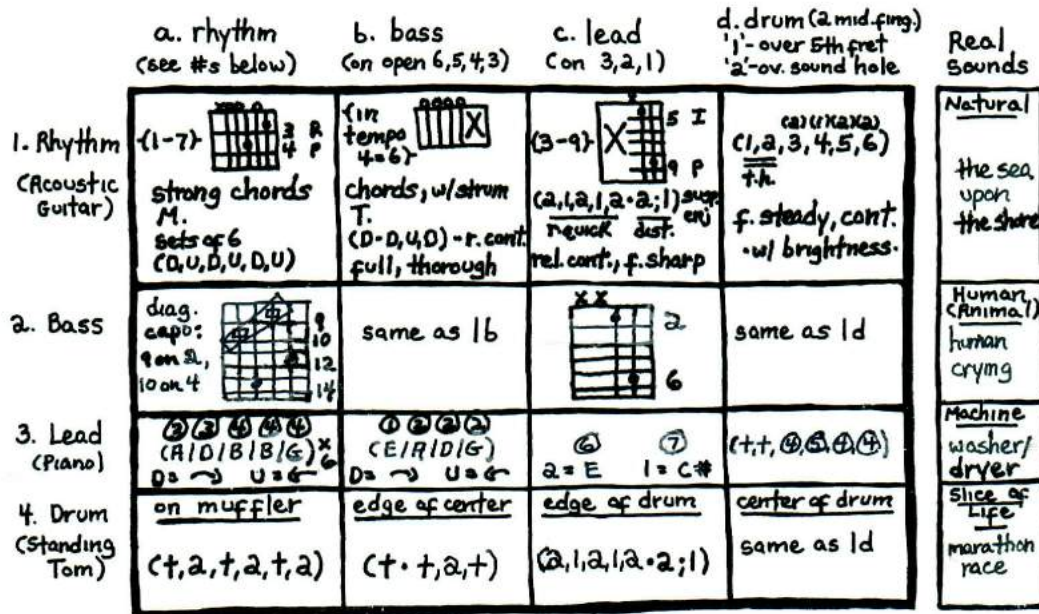 a. rhythm
(see #s below)
b. bass
(on open 6,5,4,3)
c. lead
(on 3,2,1)
d. drum (2 mid. fing.)
'1'- over 5th fret
'2'-ov. sound hole
Real
Sounds
1. Rhythm
(Acoustic
Guitar)
{1-7}
xoo o
3 R
4 P
strong chords
M.
sets of 6
(D,U,D,U,D,U)
{in
tempo
4=6}
oooo
X
chords, w/strum
T.
(D·D,U,D)-r.cont.
full, thorough
{3-9}
X
5 I
9 P
(2,1,2,1,2·2;1)
r.quick dist.
rel.cont., f.sharp
(1,2,3,4,5,6)
t.h.
f. steady, cont.
·w/ brightness·
Natural
the sea
upon
the shore
2. Bass
diag.
capo:
9 on 2,
10 on 4
9
10
12
14
same as 1b
x x
2
6
same as 1d
Human,
(Animal)
human
crying
3. Lead
(Piano)
2 3 4 4 4
(A/D/B/B/G) x
6
D= → U= ←
1 2 2 2
(E/A/D/G)
D= → U= ←
6 7
2=E 1=C#
(t,t,4,5,4,4)
Machine
washer/
dryer
4. Drum
(Standing
Tom)
on muffler
(t,2,t,2,t,2)
edge of center
(t·t,2,t)
edge of drum
(2,1,2,1,2·2;1)
center of drum
same as 1d
Slice of
Life
marathon
race